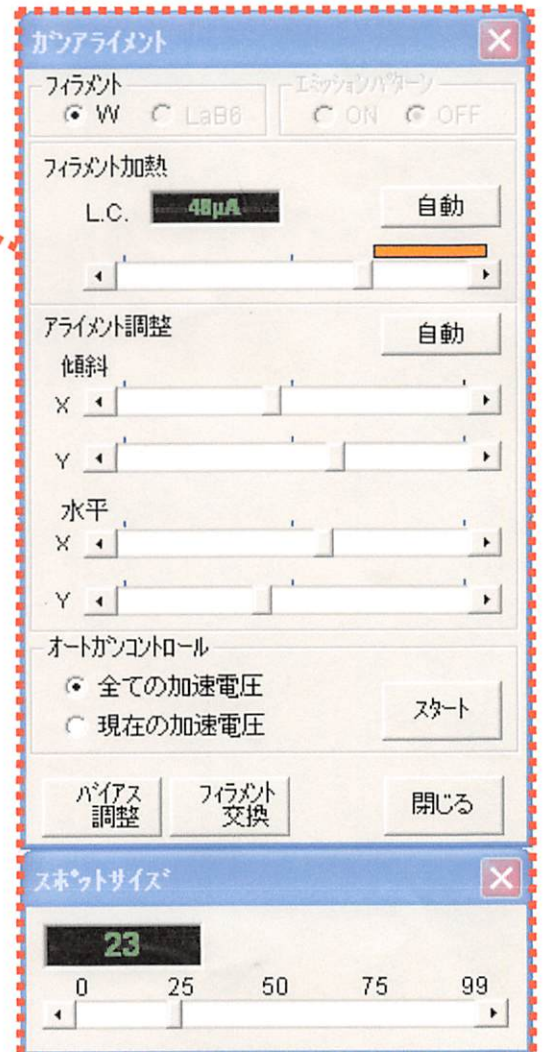 ガンアライメント
フィラメント
W
LaB6
エミッションパターン
ON
OFF
フィラメント加熱
L.C.
48μA
自動
アライメント調整
自動
傾斜
X
Y
水平
X
Y
オートガンコントロール
全ての加速電圧
現在の加速電圧
スタート
バイアス
調整
フィラメント
交換
閉じる
スポットサイズ
23
0 25 50 75 99